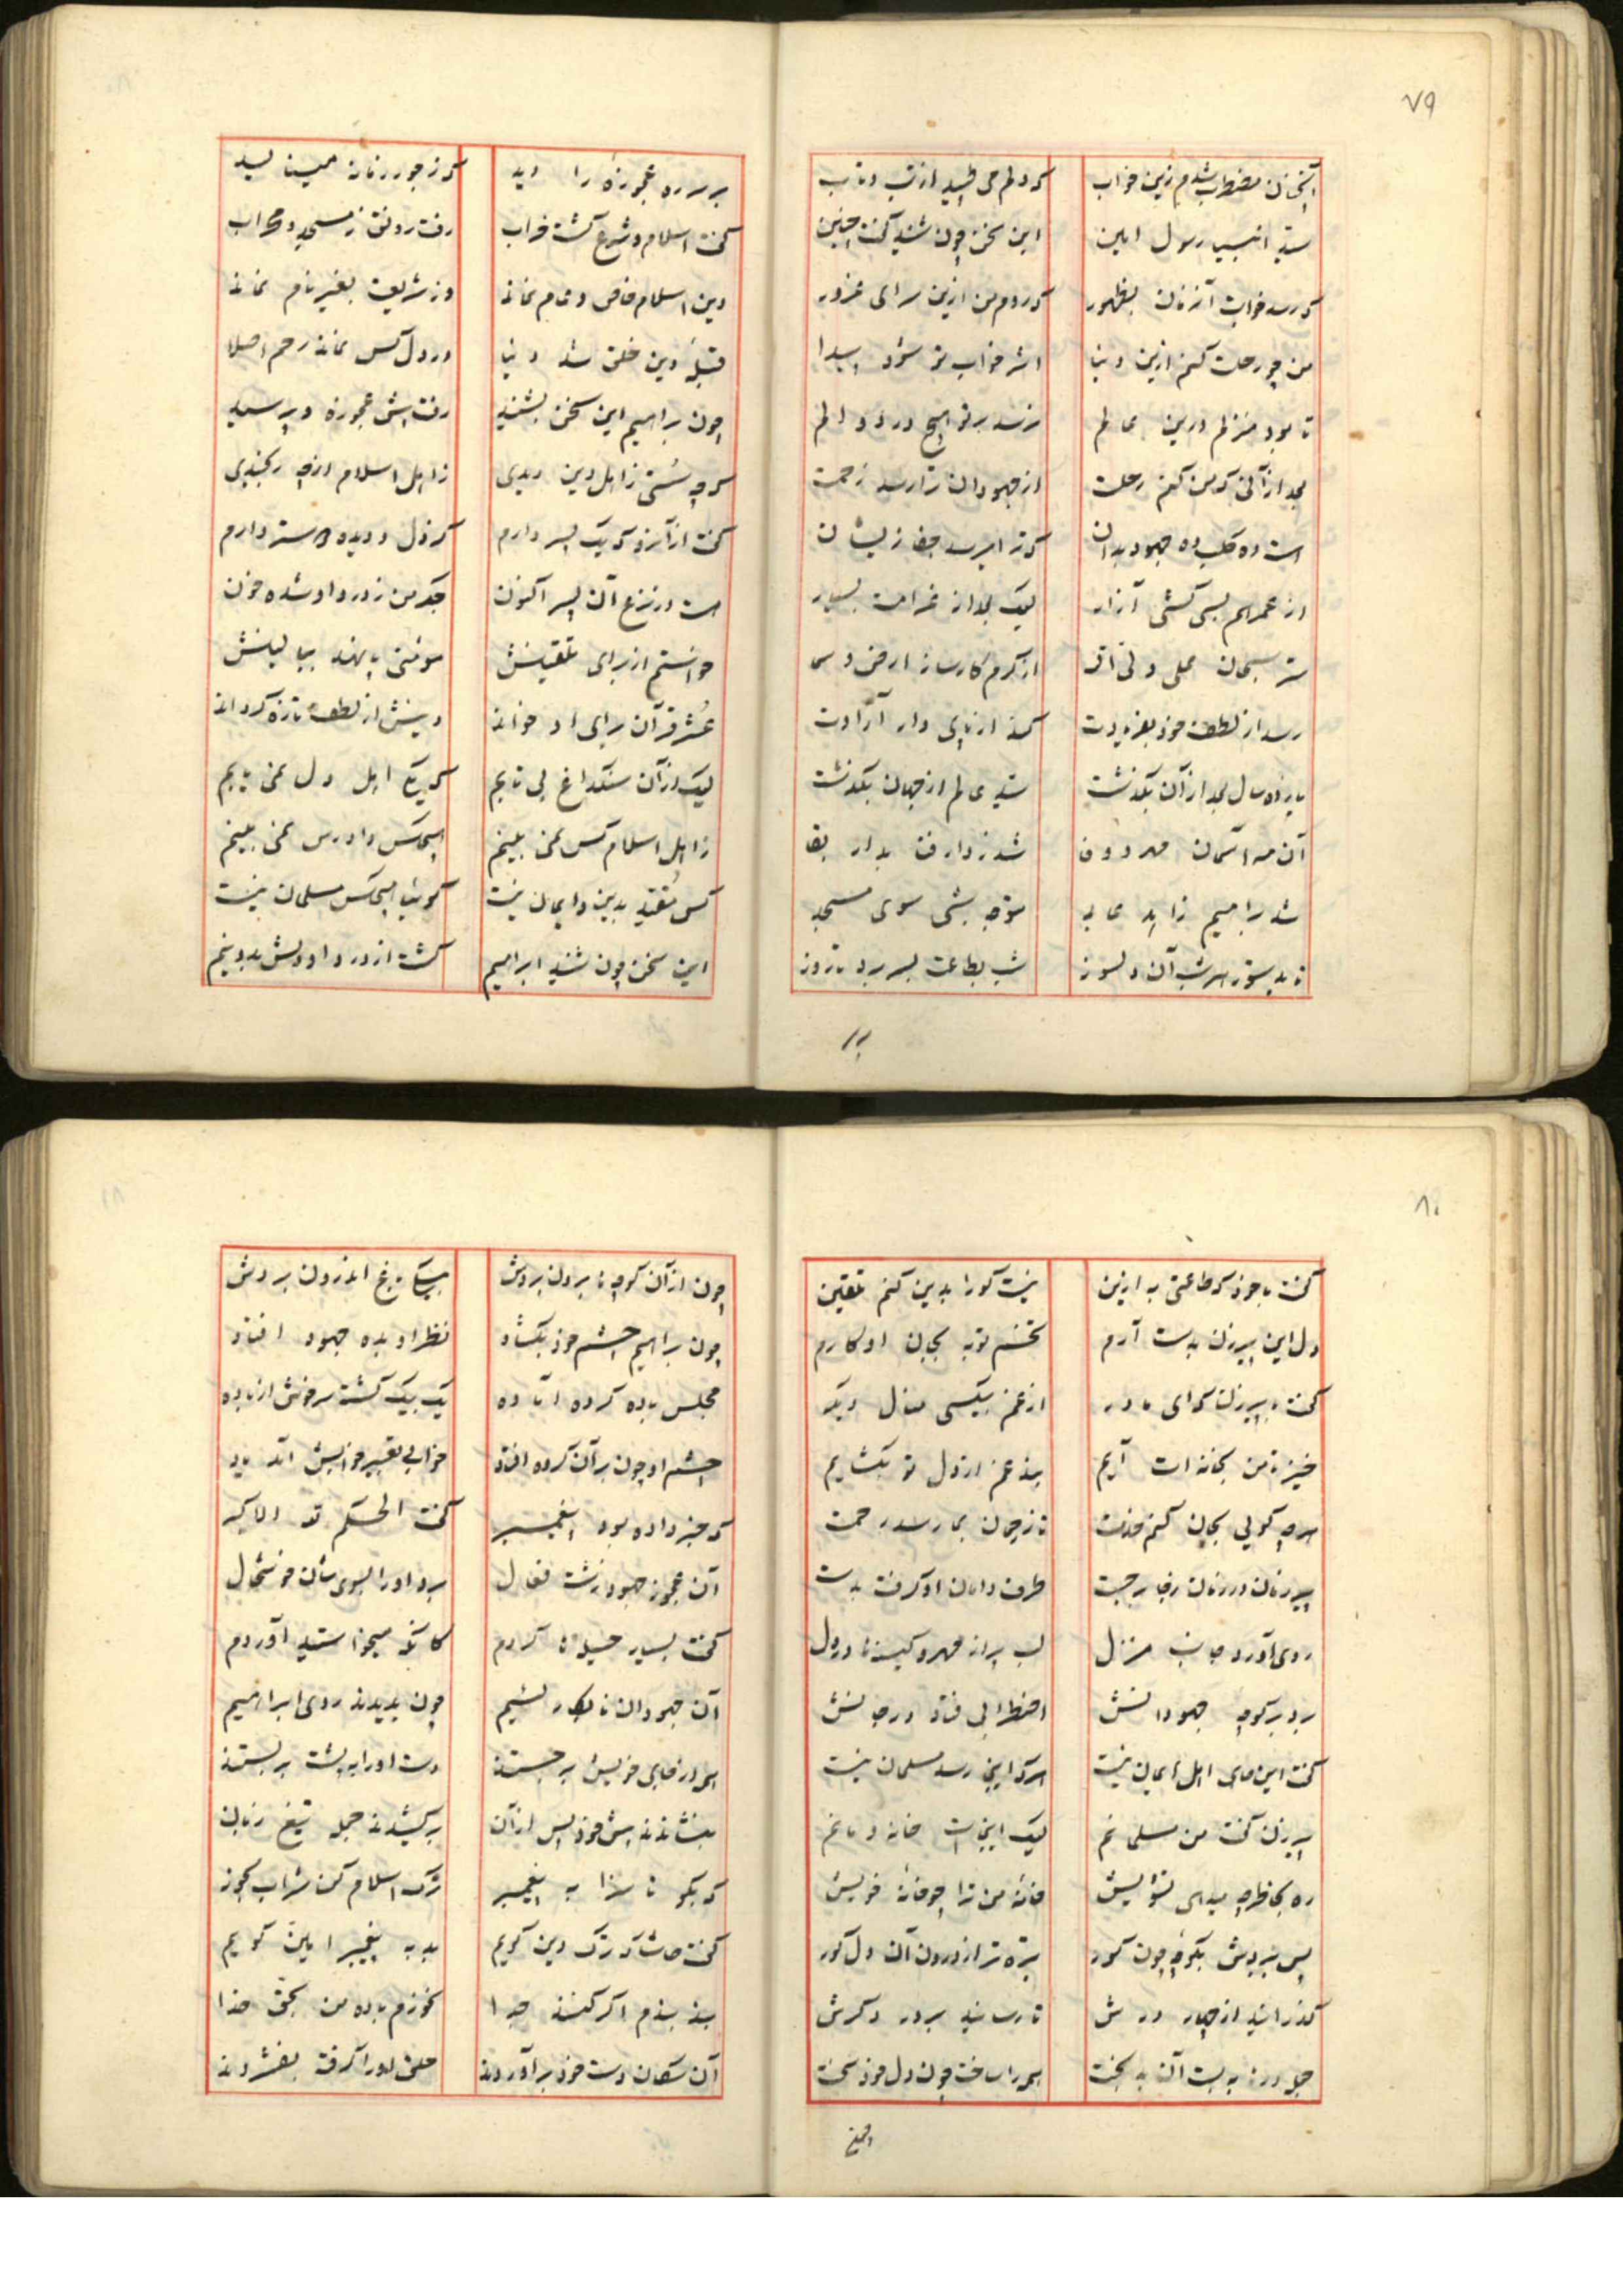 ۷۹
آنچنان مضطرب شدم زین خواب که دلم می طپید از تب و تاب
سید انبیا رسول امین این سخن چون شنید گفت چنین
که رسد خوابت آنزمان بظهور که روم من ازین سرای غرور
من چو رحلت کنم ازین دنیا اثر خواب تو شود پیدا
تا بود منزلم درین عالم نرسد بر تو هیچ درد و الم
بعد از آنی که من کنم رحلت از جهودان ترا رسد زحمت
است ده کلب ده جهود بدان که ترا میرسد جفا زیشان
از غم هم بسی کشی آزار لیک بعد از غرامت بسیار
شر سبحان علی ولی اله از کرم کارساز ارض و سما
رسد از لطف خود بفریادت کند از پای دار آزادت
پانزده سال بعد از آن بگذشت سید عالم از جهان بگذشت
آن مه آسمان مهر و وفا شد ز دار فنا بدار بقا
شد براهیم زاهد عابد متوجه بشی سوی مسجد
تا بدستور هر شب آن دلسوز شب بطاعت بسر برد تا روز
بر سر ره عجوزهٔ را دید که ز جور زمانه مینالید
گفت اسلام و شرع گشت خراب رفت رونق ز مسجد و محراب
دین اسلام خاص و عام نماند وز شریعت بغیر نام نماند
قبلهٔ دین خلق شد دنیا در دل کس نماند رحم اصلا
چون براهیم این سخن بشنید رفت پیش عجوزه و پرسید
که چه سستی ز اهل دین دیدی ز اهل اسلام از چه رنجیدی
گفت از آنرو که یک پسر دارم که ز دل و دیده دوستر دارم
است در نزع آن پسر اکنون جگر من ز درد او شده خون
خواستم از برای تلقینش مؤمنی پا نهد ببالینش
عشر قرآن برای او خواند دینش از لطف تازه گرداند
لیک از آن سنگداغ بی تابم که یک اهل دل نمی یابم
ز اهل اسلام کس نمی بینم هیچکس دادرس نمی بینم
کس مقید بدین و ایمان نیست گوئیا هیچکس مسلمان نیست
این سخن چون شنید ابراهیم گشت از درد او دلش بدو نیم
۸۰
گفت با خود که طاعتی به ازین نیست کو را بدین کنم تلقین
دل این پیرزن بدست آرم تخم توبه بجان او کارم
گفت با پیرزن که ای مادر از غم بیکسی منال دیگر
خیز تا من بخانه ات آیم بند غم از دل تو بگشایم
هر چه گوئی بجان کنم خدمت تا ز رحمان بما رسد رحمت
پیرزن در زمان ز جا برجست طرف دامان او گرفت بدست
روی آورد جانب منزل لب پر از مهر و کینه ها در دل
برد بر کوچه جهودانش اضطرابی فتاد در جانش
گفت این جای اهل ایمان نیست هر که اینجا رسد مسلمان نیست
پیرزن گفت من مسلمانم لیک اینجاست خانه و مانم
ره بخاطر چه میدهی تشویش خانهٔ من ترا چو خانهٔ خویش
پس ببردش بکوچهٔ چون گور تیره تر از درون آن دل کور
گذرانید از چهار درش تا رسانید بر در دگرش
جمله درها ببست آن بدبخت همه را ساخت چون دل خود سخت
چون از آن کوچه ها برون بردش بیکی باغ اندرون بردش
چون براهیم چشم خود بگشاد نظر او بده جهود افتاد
مجلس باده کرده آماده یک بیک گشته سرخوش از باده
چشم او چون بر آن گروه افتاد خواب و تعبیر خوابش آمد یاد
که خبر داده بود پیغمبر گفت الحکم لله الاکبر
آن عجوز جهود زشت فعال برد او را بسوی شان خوشحال
گفت بسیار حیله ها کردم کانکه میخواستید آوردم
آن جهودان نابکار لئیم چون بدیدند روی ابراهیم
همه از جای خویش برجستند دست او را به پشت بر بستند
بنشاندند پیش خود پس از آن برکشیدند جمله تیغ زبان
که بگو ناسزا به پیغمبر ترک اسلام کن شراب بخور
گفت حاشا که ترک دین گویم بد به پیغمبر امین گویم
بند بندم اگر کنند جدا نخورم باده من بحق خدا
آن سگان دست خود برآوردند حلق او را گرفته بفشردند